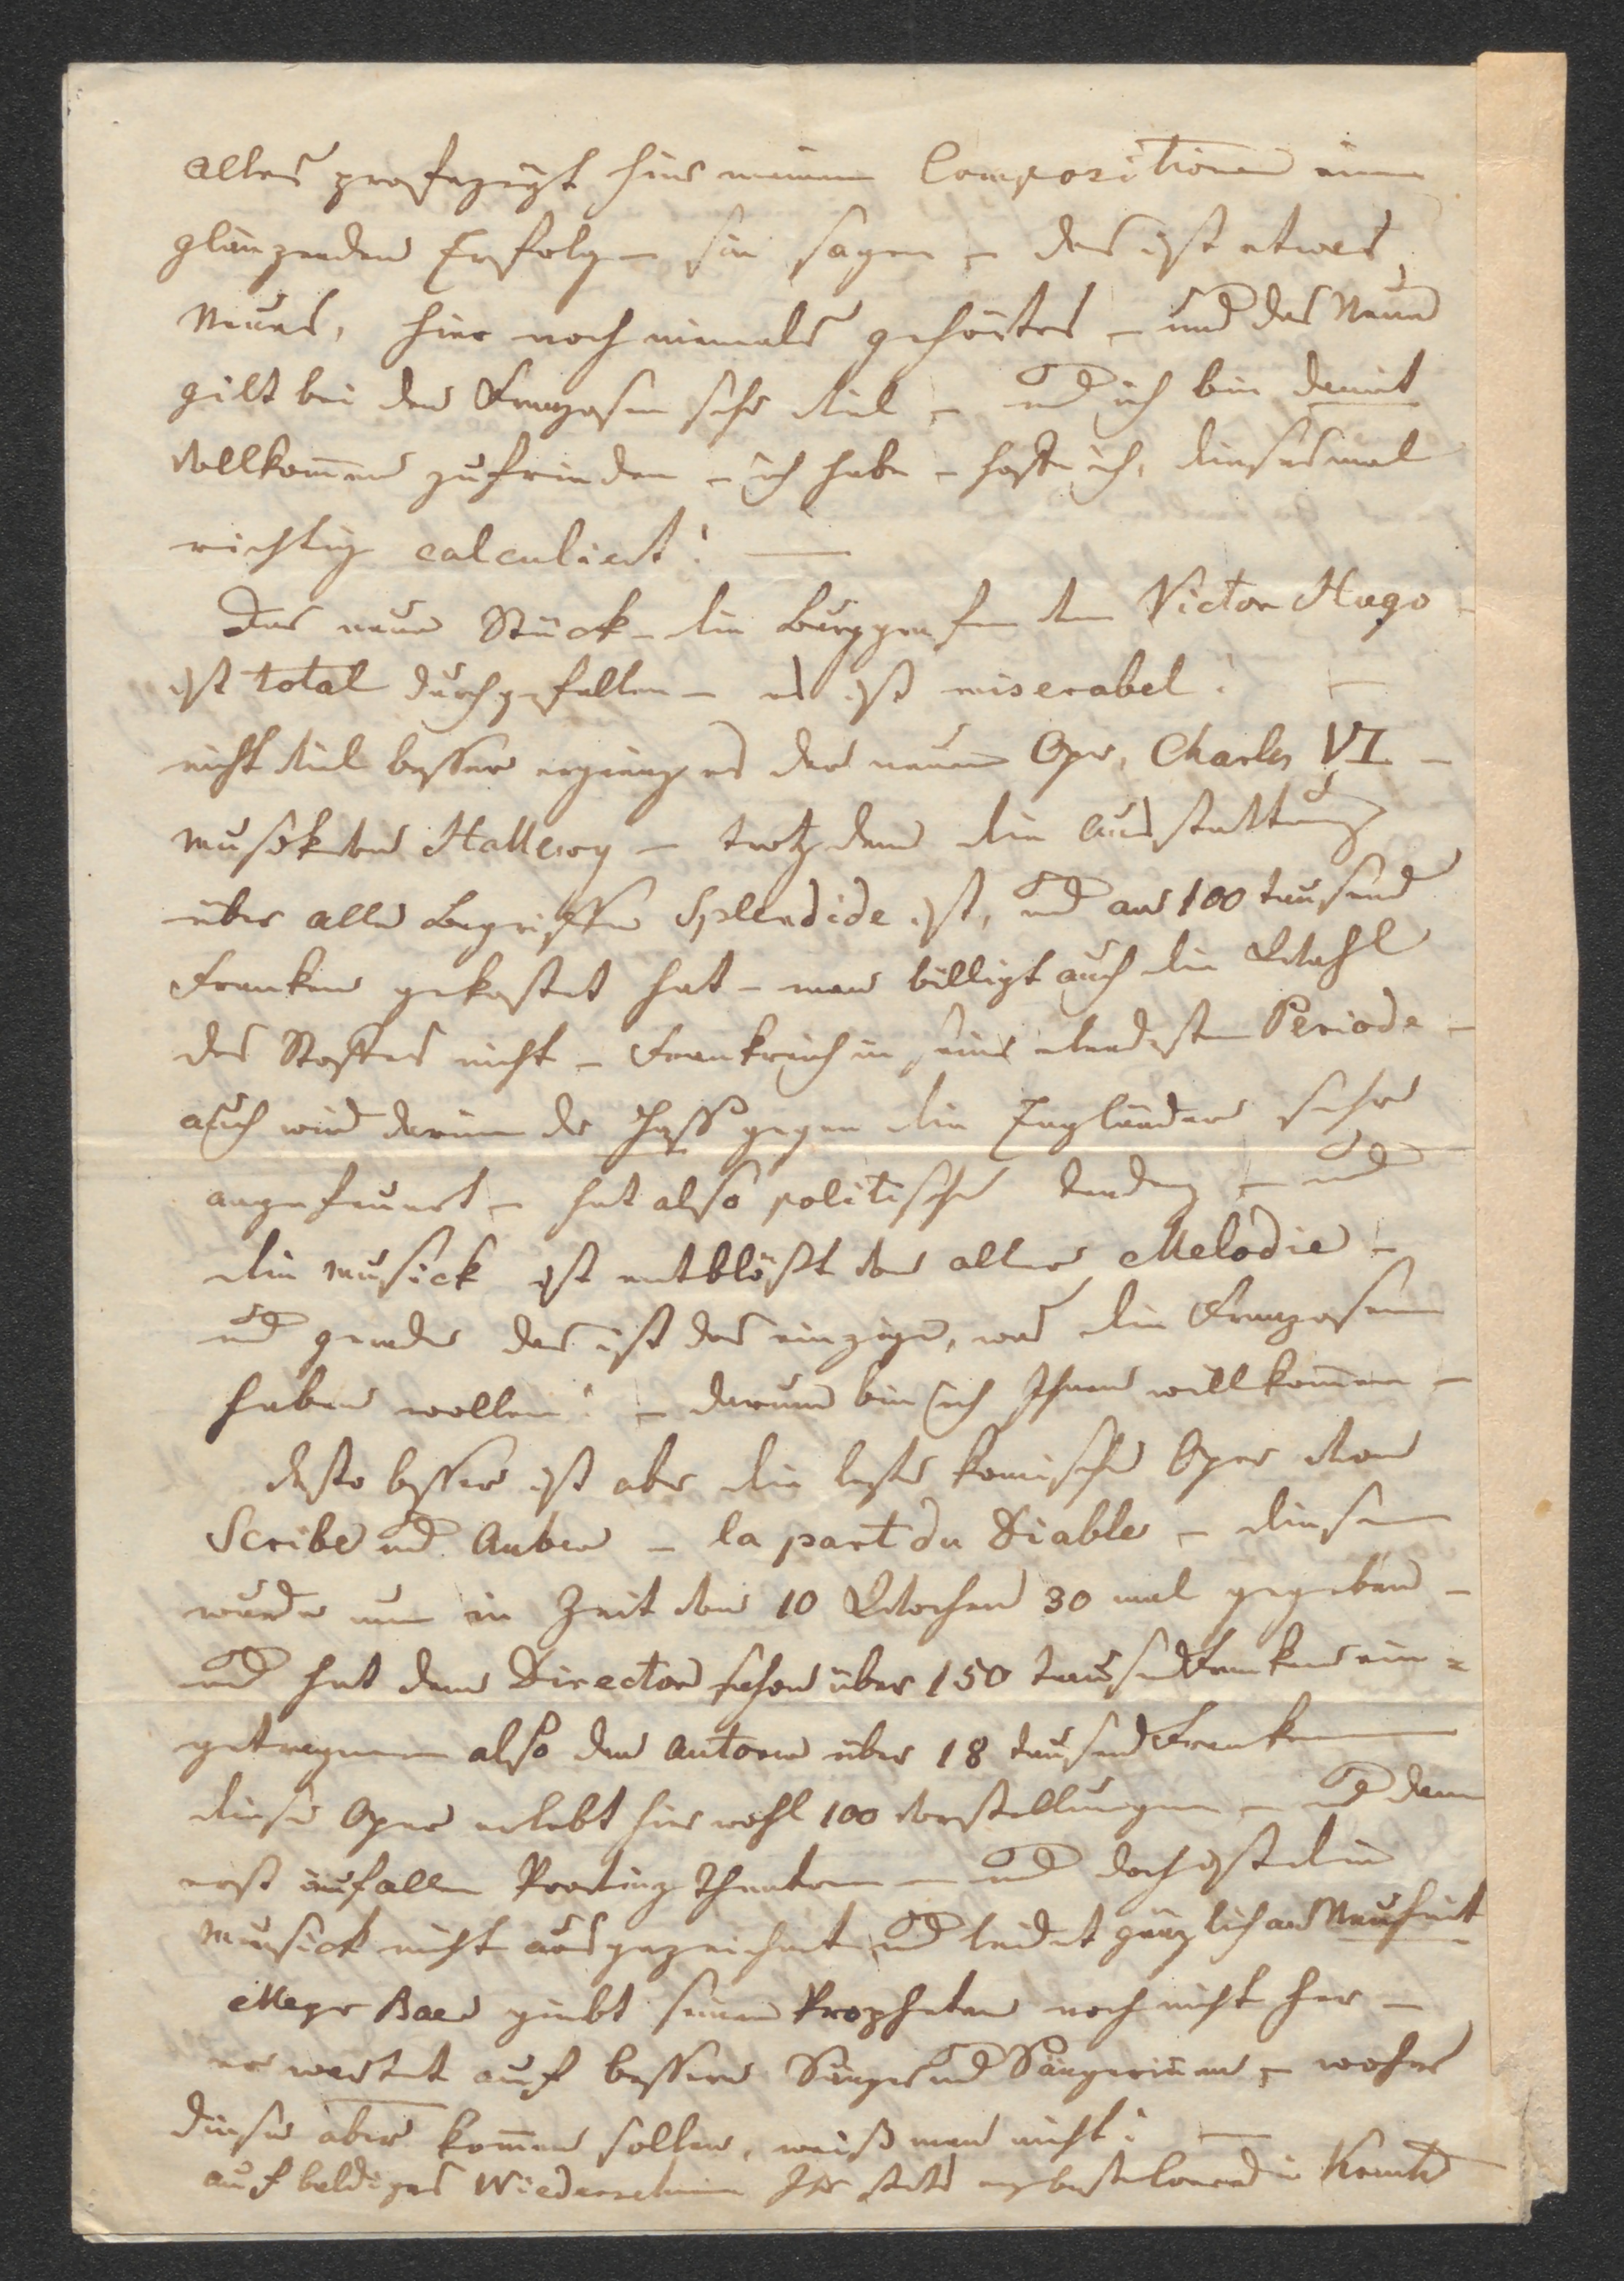 alles profezeyt hier meinen Compositionen einen
glänzenden Erfolg – sie sagen – das ist etwas
Neues, hier noch niemals gehörtes – und das Neue
gilt bei den Franzosen sehr viel – und ich bin damit
vollkommen zufrieden – ich habe – hoffe ich, diesesmal
richtig calculiert! —
Das neue Stück – die Burggrafen von Victor Hugo –
ist total durchgefallen – es ist miserabel! —
nicht viel besser erging es der neuen Oper, Charles VI. –
Musik von Hallewy – trotzdem die Ausstattung
über alle Begriffe Splendide ist, und an 100 tausend
Franken gekostet hat – man billigt auch die Wahl
des Stoffes nicht – Frankreich in seiner elendesten Periode –
auch wird darinn der Hass gegen die Engländer sehr
angefeuert – hat also politische tendenz – und
die Musick ist entblößt von aller Melodie –
und gerade das ist das einzige, was die Franzosen
haben wollen! – darum bin ich Ihnen willkommen –
desto besser ist aber die letzte komische Oper von
Scribe und Auber – la part du Diable – diese
wurde nun in Zeit von 10 Wochen 30 mal gegeben –
und hat dem Director schon über 150 tausend Franken ein=
getragen also den Autoren über 18 tausend Franken
diese Oper erlebt hier wohl 100 Vorstellungen – und dann
erst auf allen Provinz Theatern – und doch ist die
Musick nicht ausgezeichnet und leidet gänzlich an Neuheit
Meyr Baer giebt seinen Propheten noch nicht her –
er wartet auf bessere Sänger und Sängerinnen – woher
diese aber kommen sollen, weiß man nicht! —
auf baldiges Wiedersehen Ihr stets Conradin Kreutz